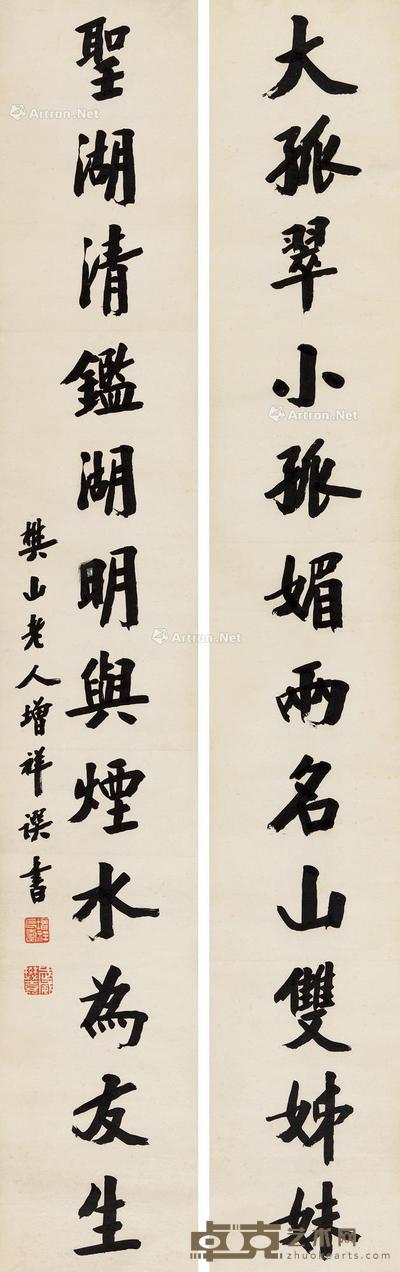 大孤翠小孤媚兩名山雙姊妹
聖湖清鑑湖明與煙水為友生
樊山老人增祥譔書
Artron.Net
Artron.Net
Artron.Net
卓克艺术网
zhuokearts.com